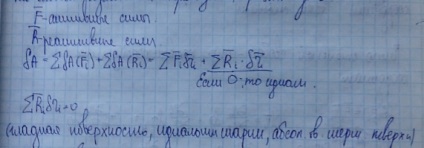 F̄-активные силы
R̄-реактивные силы
δA = ΣδA(F̄ᵢ) + ΣδA(R̄ᵢ) = ΣF̄ᵢδr̄ᵢ + ΣR̄ᵢ·δr̄ᵢ
Если 0, то идеал.
ΣR̄ᵢδr̄ᵢ=0
(гладкая поверхность, идеальный шарнир, абсол. тв. шерох. поверхн)